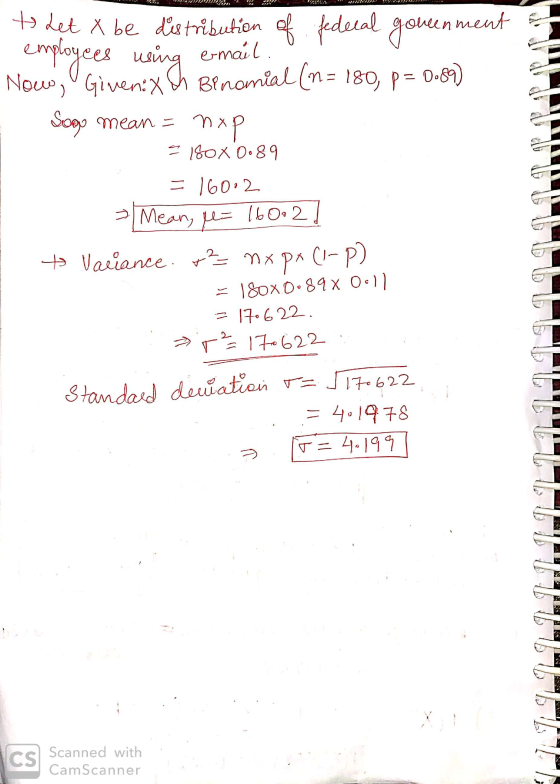 → Let X be distribution of federal government
employees using e-mail.
Now, Given: X ~ Binomial (n = 180, p = 0.89)
mean = n×p
= 180×0.89
= 160.2
⇒ Mean, μ = 160.2
→ Variance. σ² = n×p×(1-p)
= 180×0.89×0.11
= 17.622.
⇒ σ² = 17.622
Standard deviation σ = √17.622
= 4.1978
⇒ σ = 4.199
CS Scanned with
CamScanner